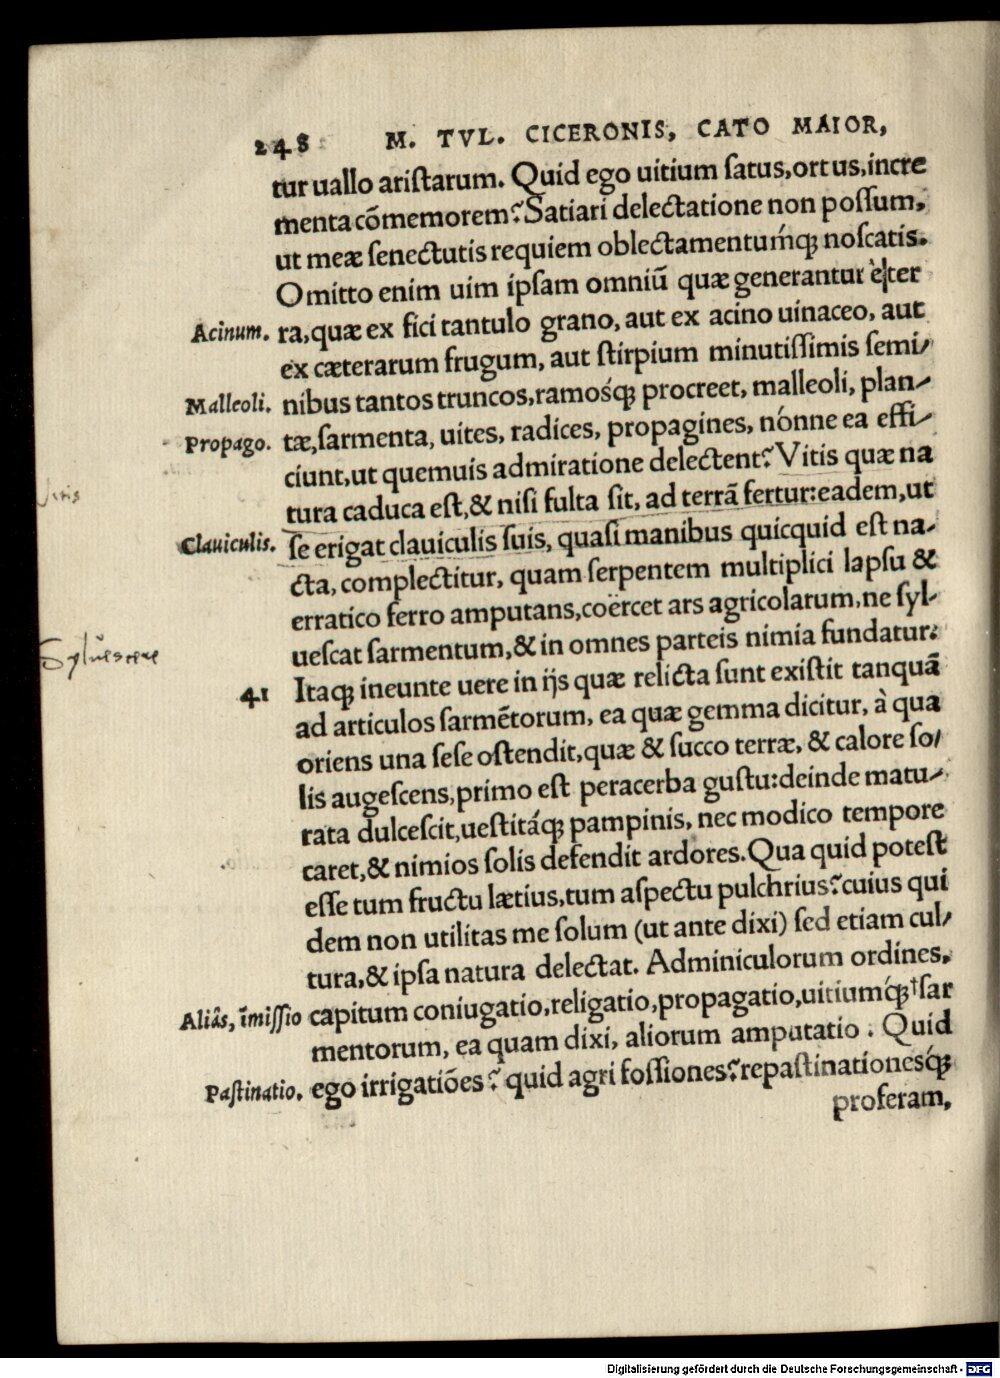 248 M. TVL. CICERONIS, CATO MAIOR,
tur uallo aristarum. Quid ego uitium satus, ortus, incre
menta cōmemorem? Satiari delectatione non possum,
ut meæ senectutis requiem oblectamentumq́; noscatis.
Omitto enim uim ipsam omniū quæ generantur è ter
Acinum. ra, quæ ex fici tantulo grano, aut ex acino uinaceo, aut
ex cæterarum frugum, aut stirpium minutissimis semi-
Malleoli. nibus tantos truncos, ramosq́; procreet, malleoli, plan-
Propago. tæ, sarmenta, uites, radices, propagines, nónne ea effi-
ciunt, ut quemuis admiratione delectent? Vitis quæ na
Vitis
tura caduca est, & nisi fulta sit, ad terrā fertur: eadem, ut
Clauiculis. se erigat clauiculis suis, quasi manibus quicquid est na-
cta, complectitur, quam serpentem multiplici lapsu &
erratico ferro amputans, coërcet ars agricolarum, ne syl-
Syluescere
uescat sarmentum, & in omnes parteis nimia fundatur:
41 Itaq; ineunte uere in ijs quæ relicta sunt existit tanquā
ad articulos sarmētorum, ea quæ gemma dicitur, à qua
oriens una sese ostendit, quæ & succo terræ, & calore so-
lis augescens, primo est peracerba gustu: deinde matu-
rata dulcescit, uestitáq; pampinis, nec modico tempore
caret, & nimios solis defendit ardores. Qua quid potest
esse tum fructu lætius, tum aspectu pulchrius? cuius qui
dem non utilitas me solum (ut ante dixi) sed etiam cul-
tura, & ipsa natura delectat. Adminiculorum ordines,
Aliâs, īmissio capitum coniugatio, religatio, propagatio, uitiumq́; †sar
mentorum, ea quam dixi, aliorum amputatio. Quid
Pastinatio. ego irrigatiōes? quid agri fossiones? repastinationesq́;
proferam,
Digitalisierung gefördert durch die Deutsche Forschungsgemeinschaft - DFG